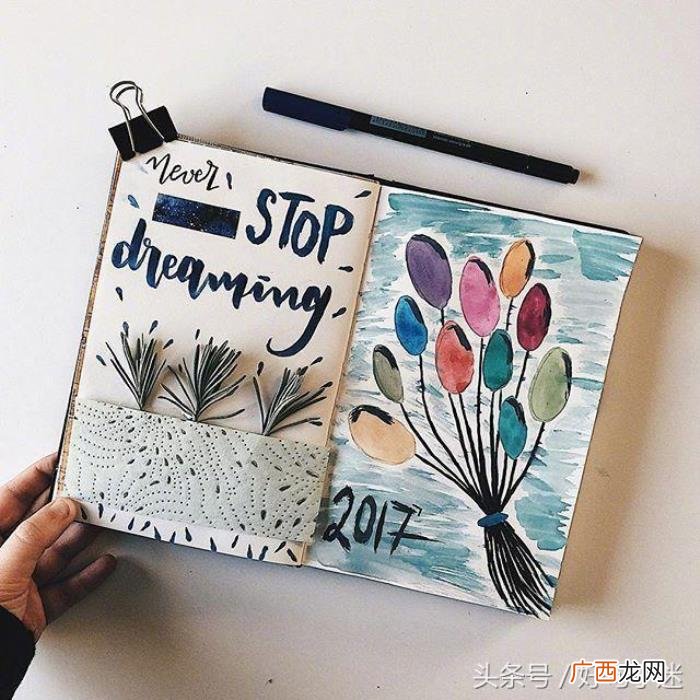 Never
STOP
dreaming
2017
头条号 / 好
广西龙网
迷